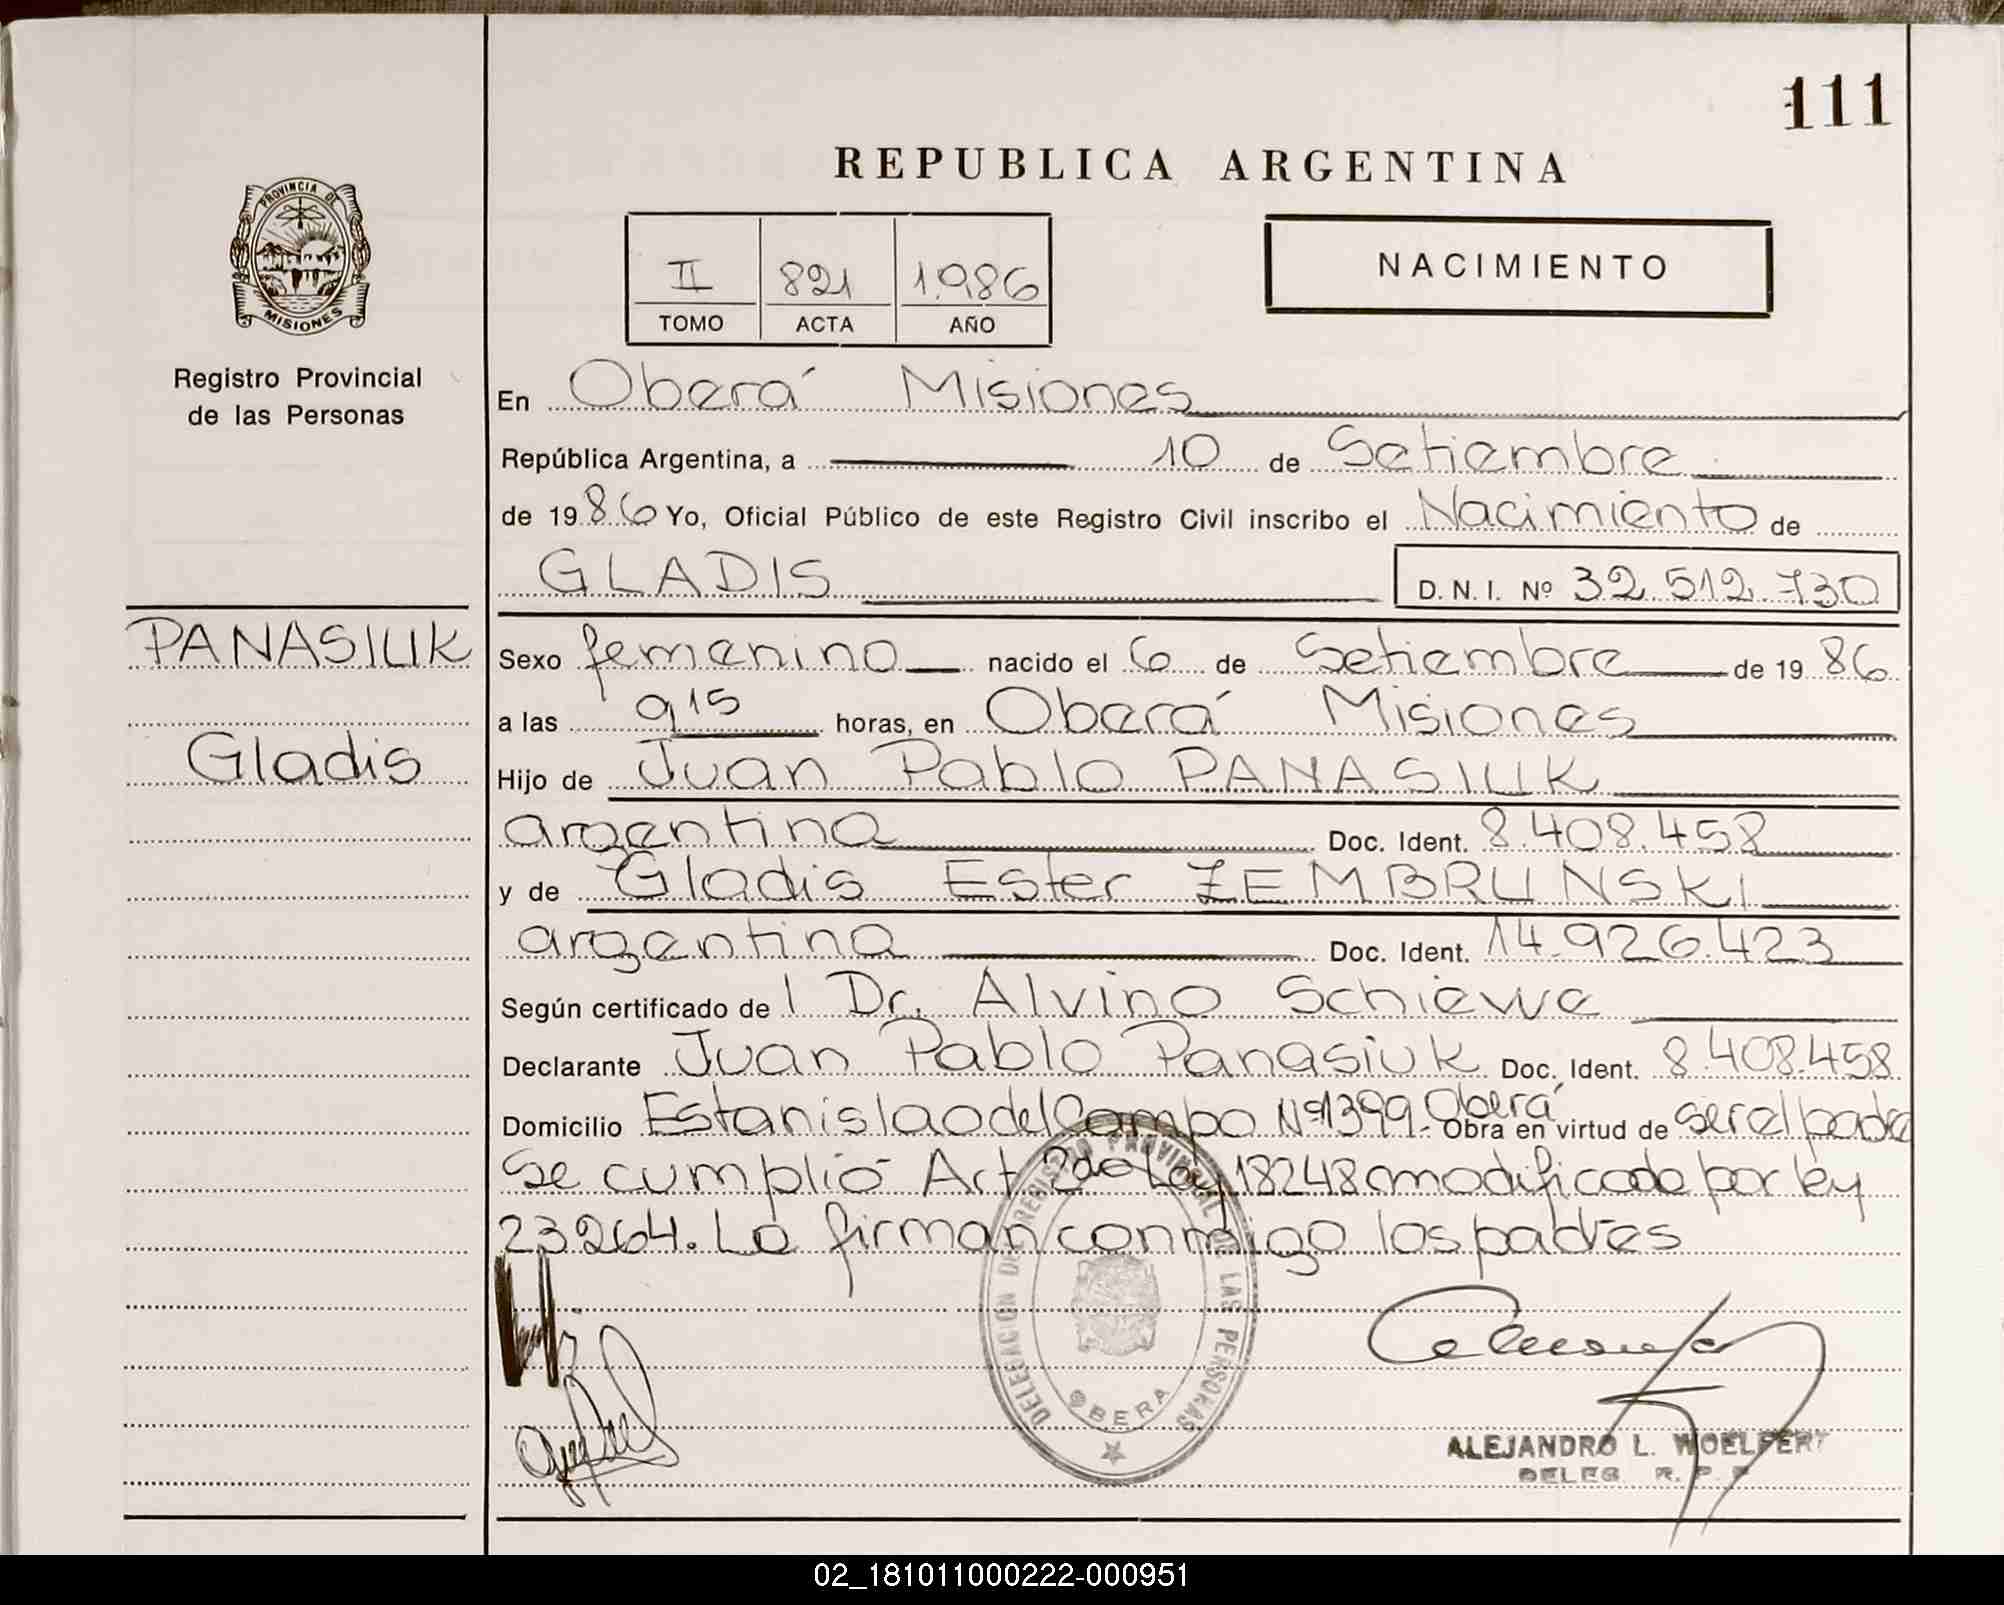 111
REPUBLICA ARGENTINA
PROVINCIA DE
MISIONES
Registro Provincial
de las Personas
II 821 1.986
TOMO ACTA AÑO
NACIMIENTO
En Oberá Misiones
República Argentina, a 10 de Setiembre
de 1986 Yo, Oficial Público de este Registro Civil inscribo el Nacimiento de
GLADIS D.N.I. Nº 32.512.730
PANASIUK
Gladis
Sexo femenino nacido el 6 de Setiembre de 1986
a las 9 15 horas, en Oberá Misiones
Hijo de Juan Pablo PANASIUK
argentina Doc. Ident. 8.408.458
y de Gladis Ester ZEMBRUNSKI
argentina Doc. Ident. 14.926.423
Según certificado del Dr. Alvino Schiewe
Declarante Juan Pablo Panasiuk Doc. Ident. 8.408.458
Domicilio Estanislao del Campo Nº 1399. Oberá Obra en virtud de ser el padre
se cumplió Art 2do Ley 18248 modificado por ley
23264. La firman conmigo los padres
DELEGACION DEL REGISTRO PROVINCIAL DE LAS PERSONAS
OBERA
ALEJANDRO L. WOELFERT
DELEG. R. P. P.
02_181011000222-000951